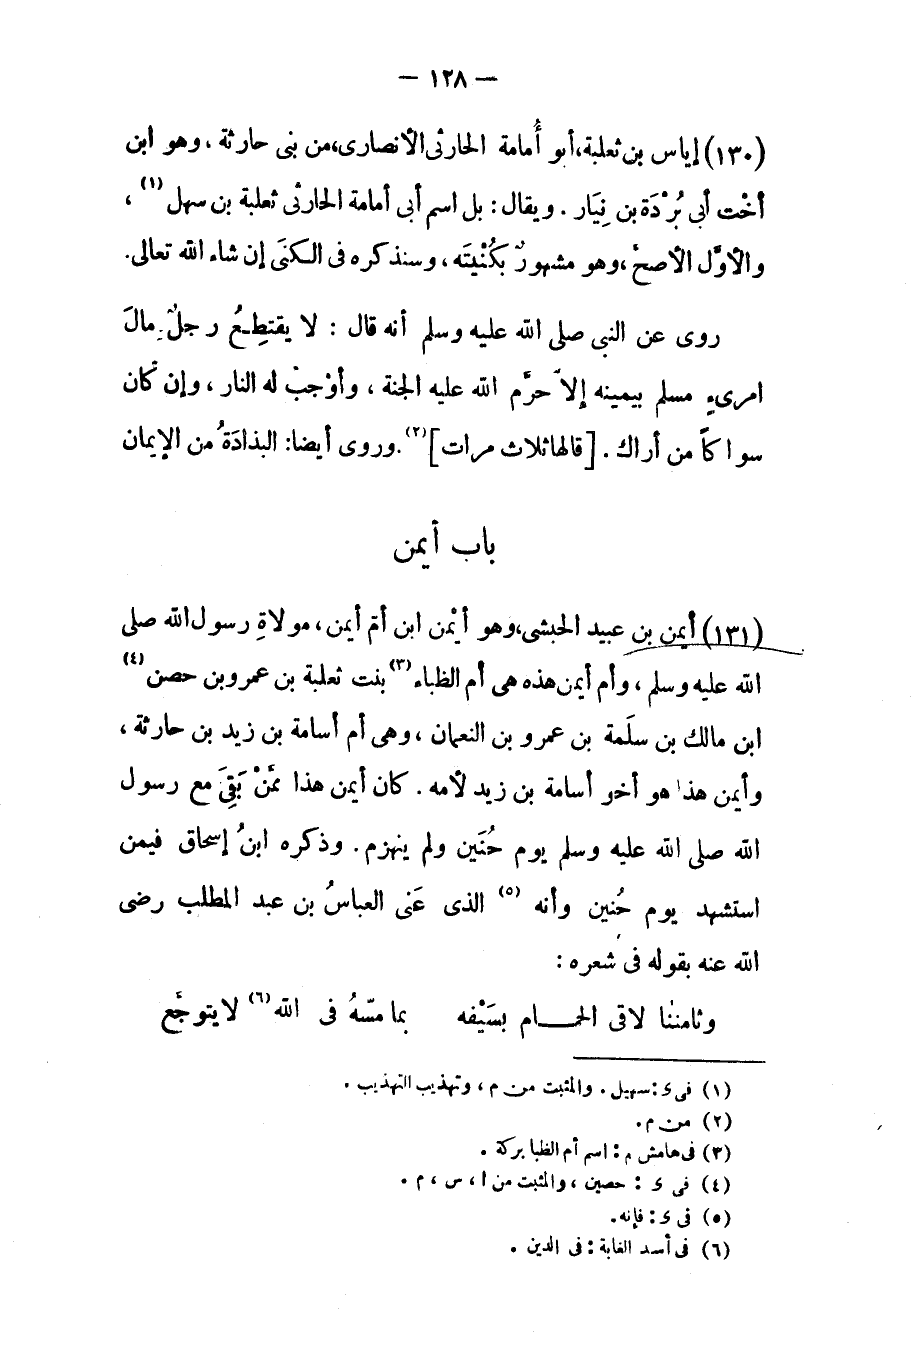 — ١٢٨ —
(١٣٠) إياس بن ثعلبة، أبو أُمامة الحارثى الأنصارى، من بنى حارثة ، وهو ابن
أخْت أبي بُرْدَة بن نِيَار . ويقال : بل اسم أبى أمامة الحارثى ثعلبة بن سهل (١) ،
والأوَّل الأصحّ ، وهو مشهورٌ بكُنْيَته ، وسنذكره فى الكنَى إن شاء الله تعالى.
روى عن النبى صلى الله عليه وسلم أنه قال : لا يقتطِعُ رجلٌ مالَ
امرىءٍ مسلم بيمينه إلاّ حرَّم الله عليه الجنة ، وأوْجبْ له النار ، وإن كان
سواكاً من أراك . [قالها ثلاث مرات](٢) .وروى أيضا: البذاذَةُ من الإيمان
باب أيمن
(١٣١) أيمن بن عبيد الحبشى،وهو أيْمن ابن أمّ أيمن ، مولاةِ رسول الله صلى
الله عليه وسلم ، وأم أيمن هذه هى أم الظباء (٣) بنت ثعلبة بن عمرو بن حصن (٤)
ابن مالك بن سلَمة بن عمرو بن النعمان ، وهى أم أسامة بن زيد بن حارثة ،
وأيمن هذا هو أخو أسامة بن زيد لأمه . كان أيمن هذا ممَّنْ بَقِىَ مع رسول
الله صلى الله عليه وسلم يوم حُنَين ولم ينهزم . وذكره ابنُ إسحاق فيمن
استشهد يوم حُنين وأنه (٥) الذى عَنى العباسُ بن عبد المطلب رضى
الله عنه بقوله فى شعره :
وثامننا لاقى الحمـــام بسَيْفه بما مسّهُ فى الله (٦) لا يتوجَّع
(١) فى ى : سهيل . والمثبت من م ، وتهذيب التهذيب .
(٢) من م .
(٣) فى هامش م : اسم أم الظبا بركة .
(٤) فى ى : حصين ، والمثبت من ا ، س ، م .
(٥) فى ى : فإنه .
(٦) فى أسد الغابة : فى الدين .